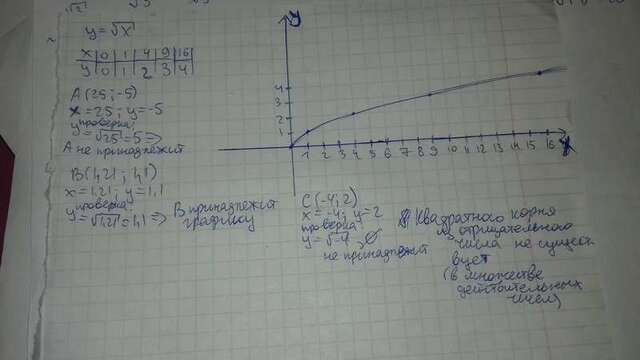 y=√x
x | 0 | 1 | 4 | 9 | 16
y | 0 | 1 | 2 | 3 | 4
A(25; -5)
x=25; y=-5
проверка:
y=√25=5 =>
A не принадлежит
B(1,21; 1,1)
x=1,21; y=1,1
проверка:
y=√1,21=1,1 => B принадлежит
графику
C(-4; 2)
x=-4; y=2
проверка:
y=√-4
не принадлежит
Квадратного корня
из отрицательного
числа не сущест
вует
(в множестве
действительных
чисел)
y
4
3
2
1
1 2 3 4 5 6 7 8 9 10 11 12 13 14 15 16
x